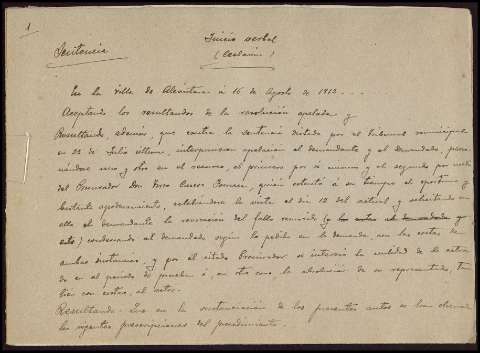 1
Juicio verbal
Sentencia
(Reclamn.)
En la villa de Alcántara á 16 de Agosto de 1912 . . .
Aceptando los resultandos de la resolución apelada y
Resultando, además, que contra la sentencia dictada por el Tribunal municipal
en 22 de Julio último, interpusieron apelación el demandante y el demandado, perso-
nándose uno y otro en el recurso, el primero por sí mismo y el segundo por medio
del Procurador Don quién ostentó á su tiempo el oportuno y
bastante apoderamiento, celebrándose la vista el día 12 del actual y solicitando en
ella el demandante la revocación del fallo recurrido (y las costas al demandado y
) condenando al demandado según lo pedido en la demanda, con las costas de
ambas instancias, y por el citado Procurador se interesó la nulidad de lo actua-
do en el período de prueba ó, en otro caso la absolución de su representado, tam-
bién con costas, al actor.
Resultando: Que en la sustanciación de los presentes autos se han observado
las vigentes prescripciones del procedimiento.